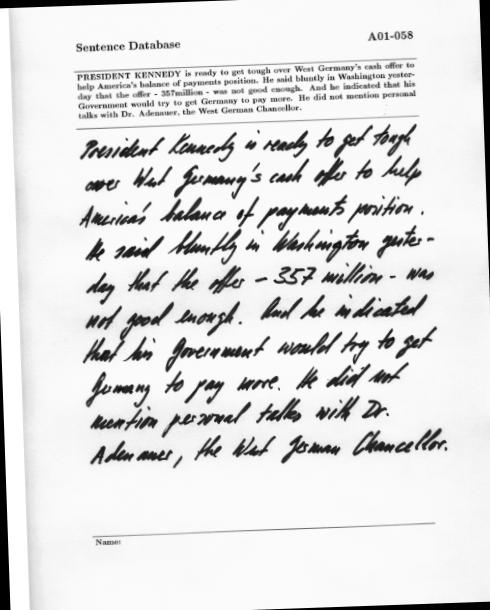 Sentence Database
A01-058
PRESIDENT KENNEDY is ready to get tough over West Germany's cash offer to
help America's balance of payments position. He said bluntly in Washington yester-
day that the offer - 357million - was not good enough. And he indicated that his
Government would try to get Germany to pay more. He did not mention personal
talks with Dr. Adenauer, the West German Chancellor.
President Kennedy is ready to get tough
over West Germany's cash offer to help
America's balance of payments position.
He said bluntly in Washington yester-
day that the offer - 357 million - was
not good enough. And he indicated
that his Government would try to get
Germany to pay more. He did not
mention personal talks with Dr.
Adenauer, the West German Chancellor.
Name: